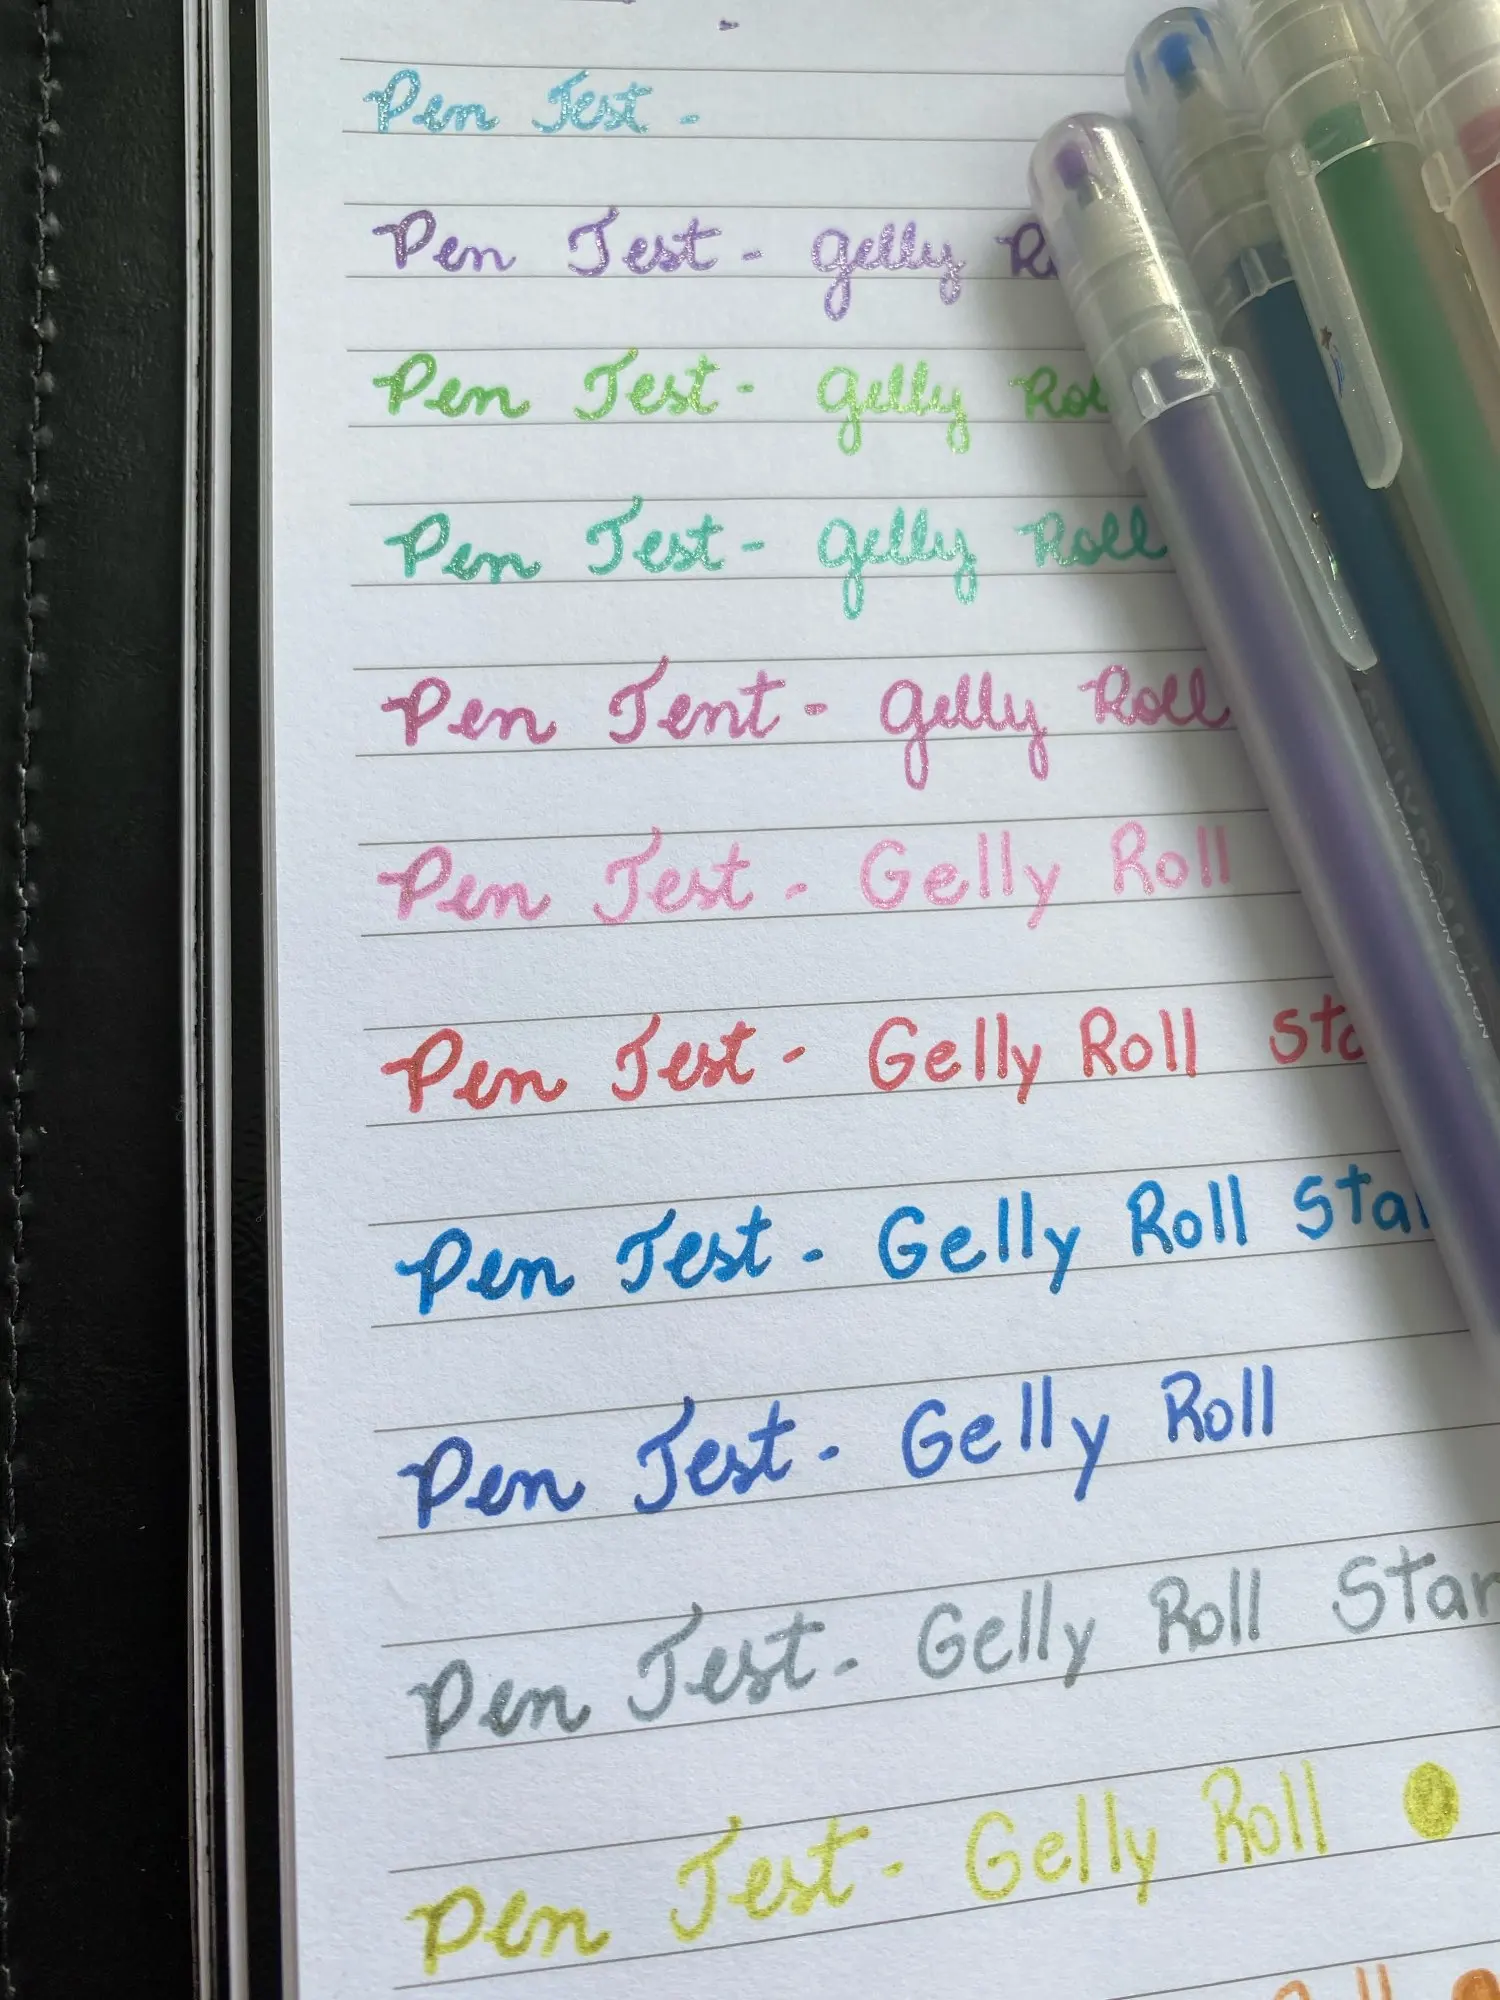 Pen Test -
Pen Test - Gelly
Pen Test - Gelly Roll
Pen Test - Gelly Roll
Pen Tent - Gelly Roll
Pen Test - Gelly Roll
Pen Test - Gelly Roll
Pen Test - Gelly Roll Star
Pen Test - Gelly Roll
Pen Test - Gelly Roll Star
Pen Test - Gelly Roll
JAPAN/JAPON/JAPÓN